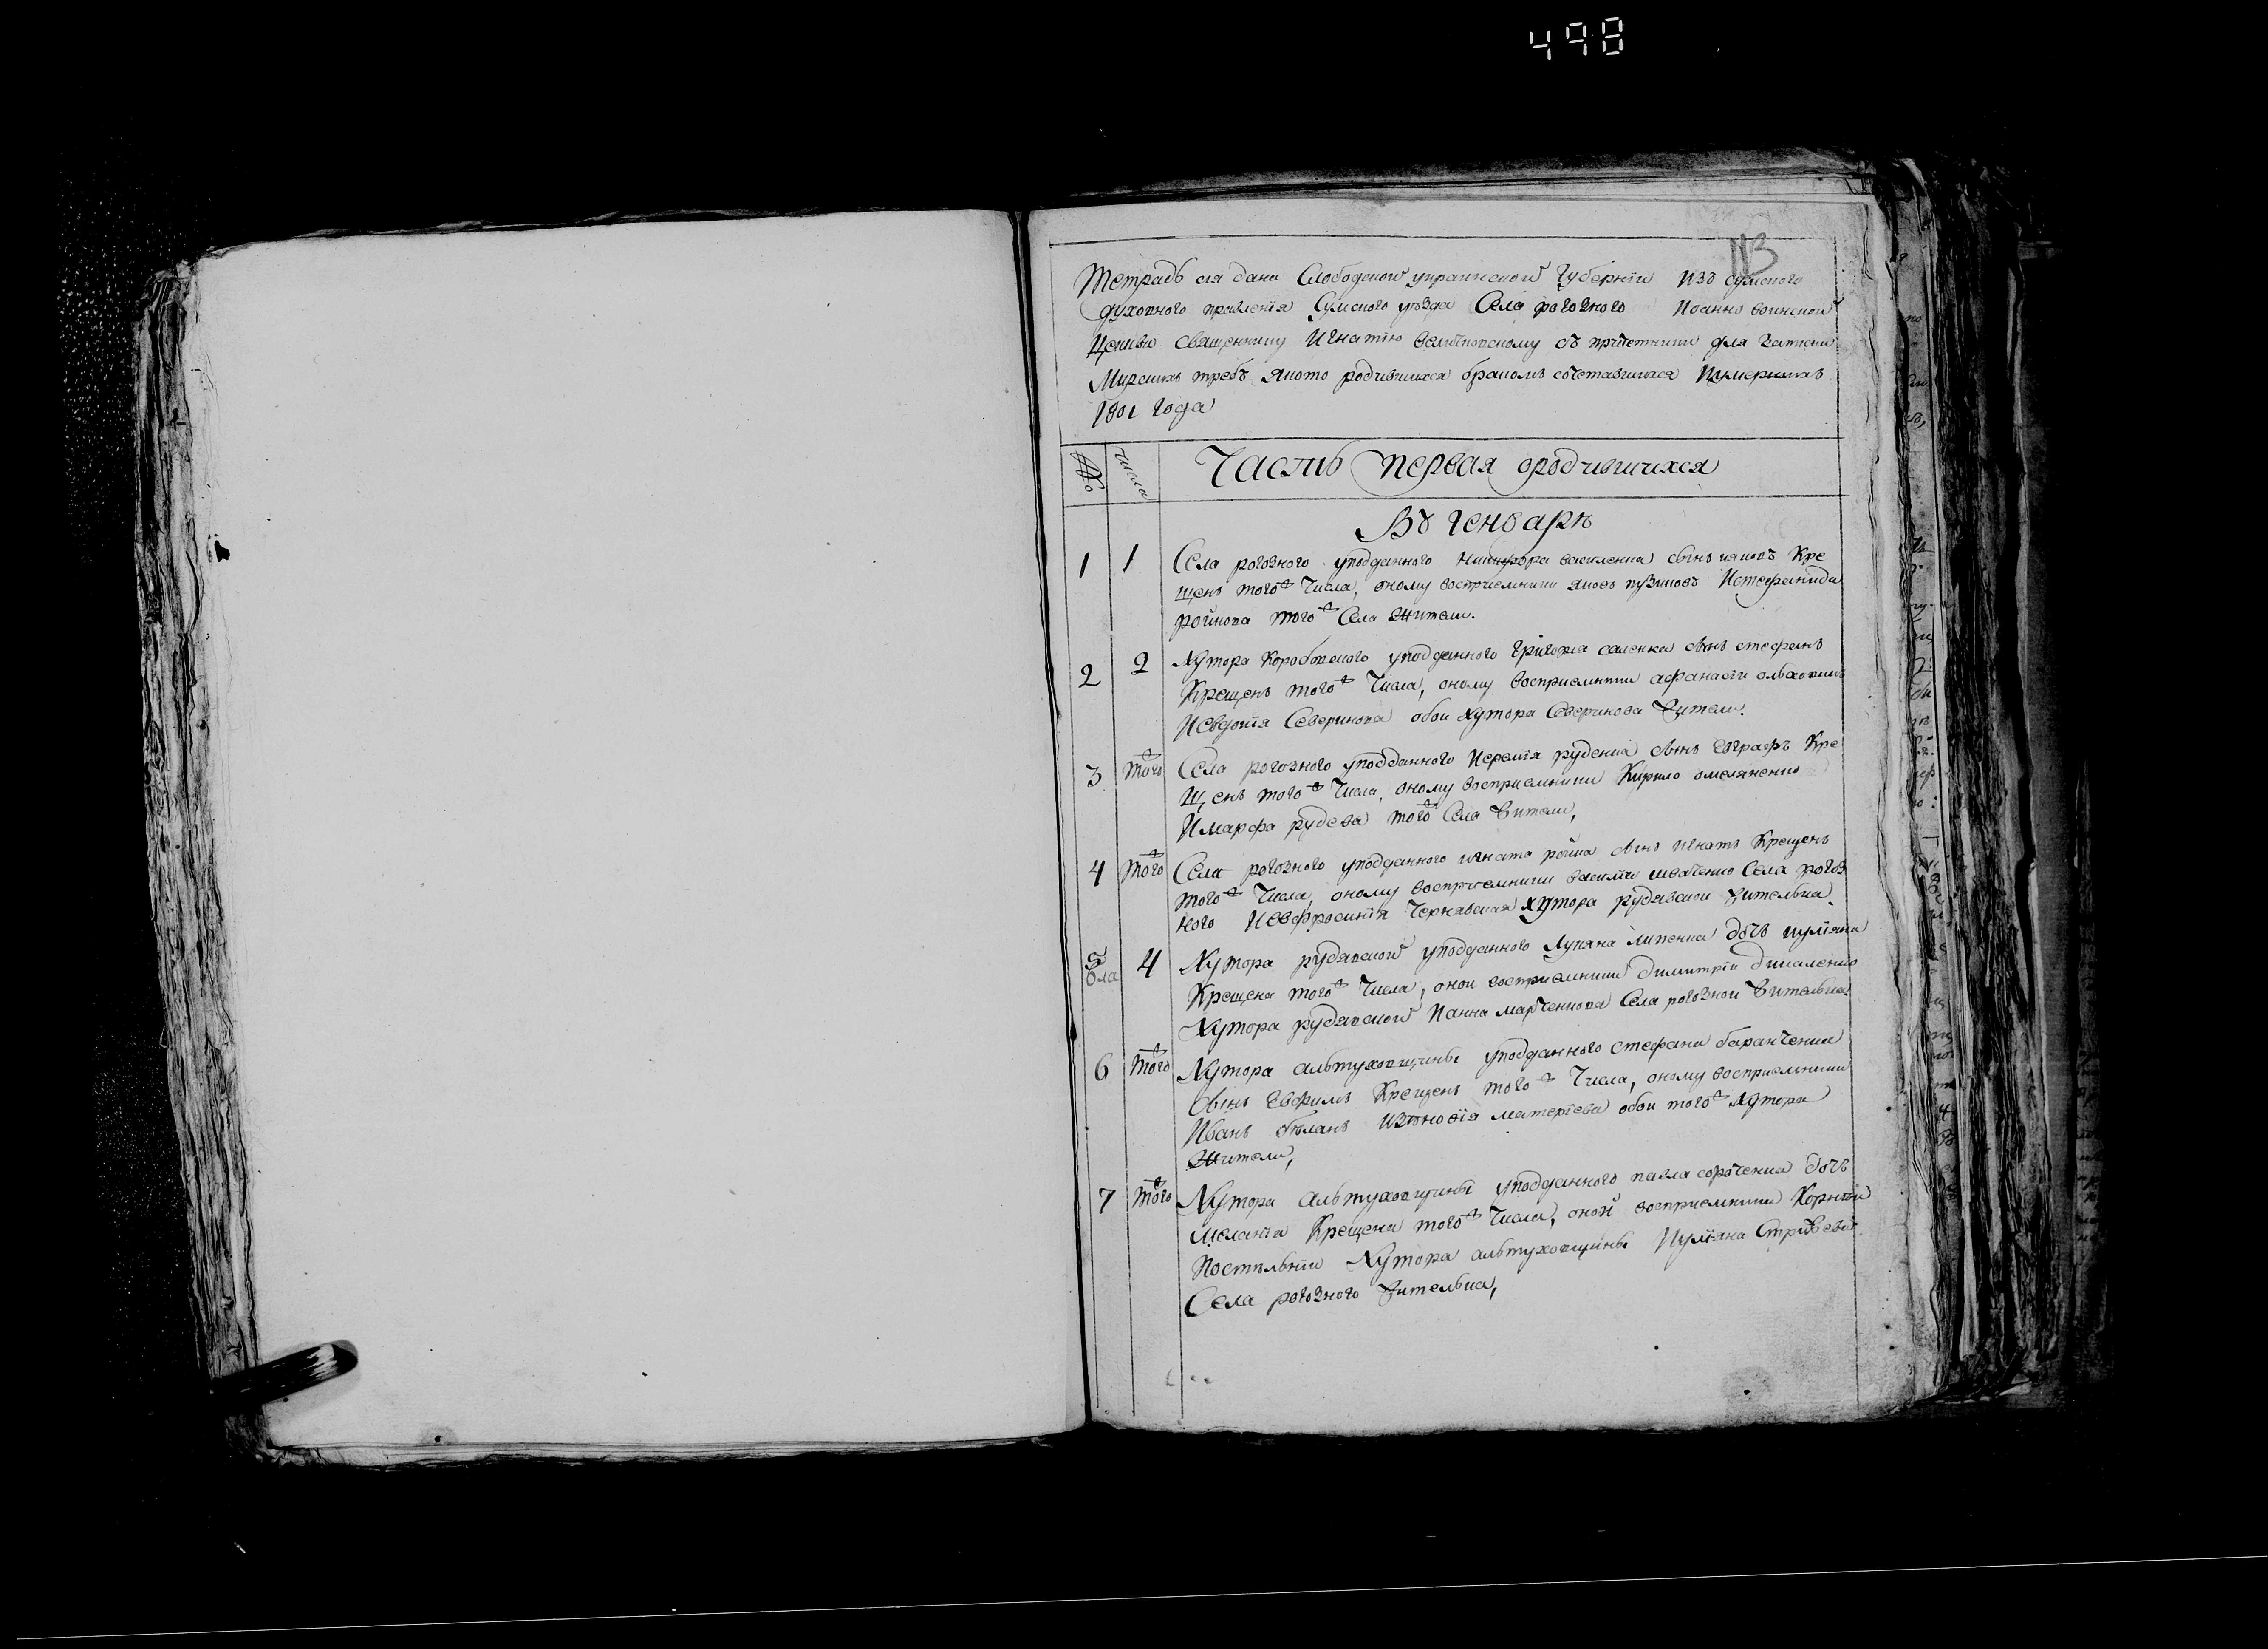 498
113
Тетрадь сія дана Слободской украинской Губерніи изъ сумского
духовного правленія Сумского уѣзда Села рогозного Іоанно воинской
Церкви священнику Игнатію с причетники для записки
Мирскихъ требъ якото родившихся бракомъ сочетавшихся Иумершихъ
1801 года
№ числа Часть первая ородившихся
Въ генварѣ
1 1 Села рогозного уподданного Никифора василенка сынъ яковъ Кре
щенъ того ж Числа, оному восприемники яковъ пузиковъ Истефанида
ройкова того ж Села Жители.
2 2 Хутора уподданного Григорія саленка сынъ стефанъ
Крещенъ того ж Числа, оному восприемники афанасій
Иевдокія Северинова обои хутора Северинова Жители.
3 того ж Села рогозного уподданного Иеремія руденка сынъ евграфъ Кре
щенъ того ж Числа, оному восприемники Кирило омеляненко
Имарфа рудева того ж Села Жители,
4 того ж Села рогозного уподданного игната ройка сынъ игнатъ Крещенъ
того ж Числа, оному восприемники василій шевченко Села рогоз
ного Иевфросинія Чернявская хутора рудявской жителька.
5 бла 4 Хутора рудявской уподданного Лукяна липенка дочь иуліяна
Крещена того ж Числа, оной восприемники Димитрій
Хутора рудявской Ианна марченкова Села рогозной Жителька.
6 того ж Хутора альтуховщины уподданного стефана баранченка
Сынъ Евфимъ Крещенъ того ж Числа, оному восприемники
Иванъ бѣланъ Изѣновія матвѣева обои того ж Хутора
Жители,
7 того ж Хутора альтуховщины уподданного павла сороченка дочь
меланія Крещена того ж Числа, оной восприемники Корнѣй
Хутора альтуховщины Иуліяна
Села рогозного жителька,